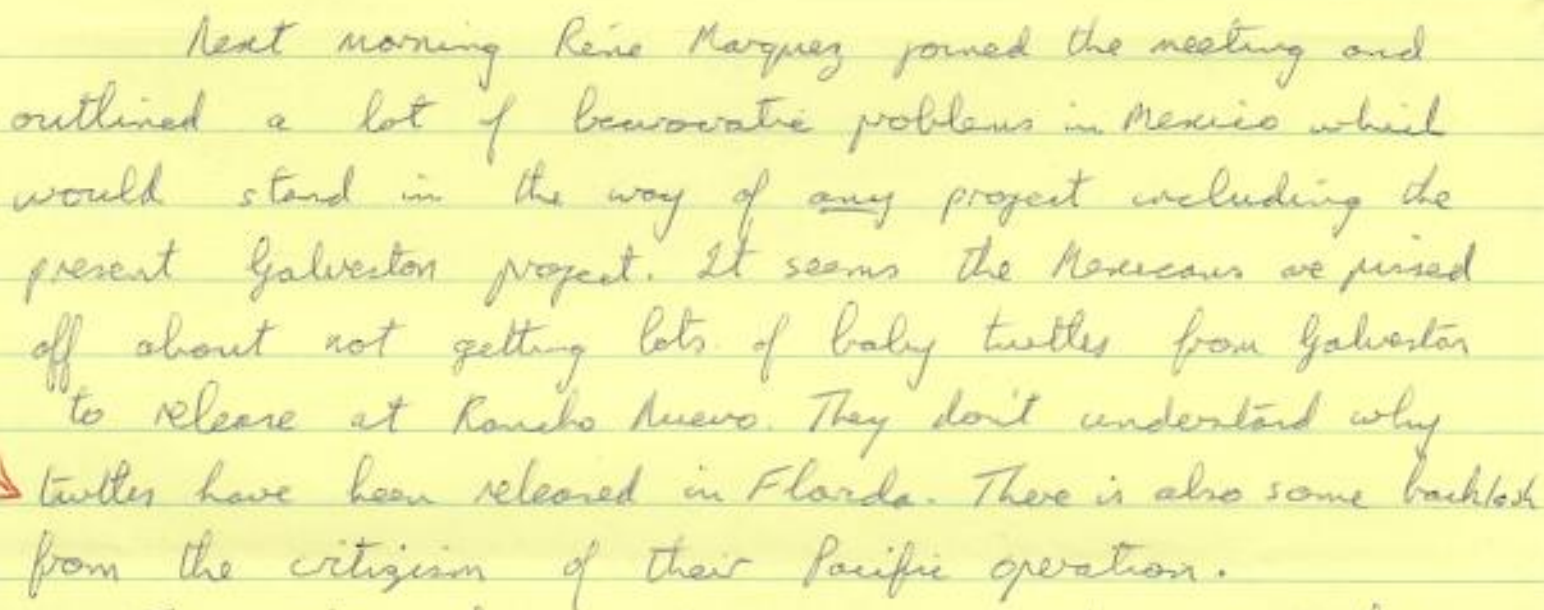 Next morning Réne Marquez joined the meeting and
outlined a lot of beurocratic problems in Mexico which
would stand in the way of any project including the
present Galveston project. It seems the Mexicans are pissed
off about not getting lots of baby turtles from Galveston
to release at Rancho Nuevo. They don't understand why
turtles have been released in Florida. There is also some backlash
from the critizism of their Pacific operation.